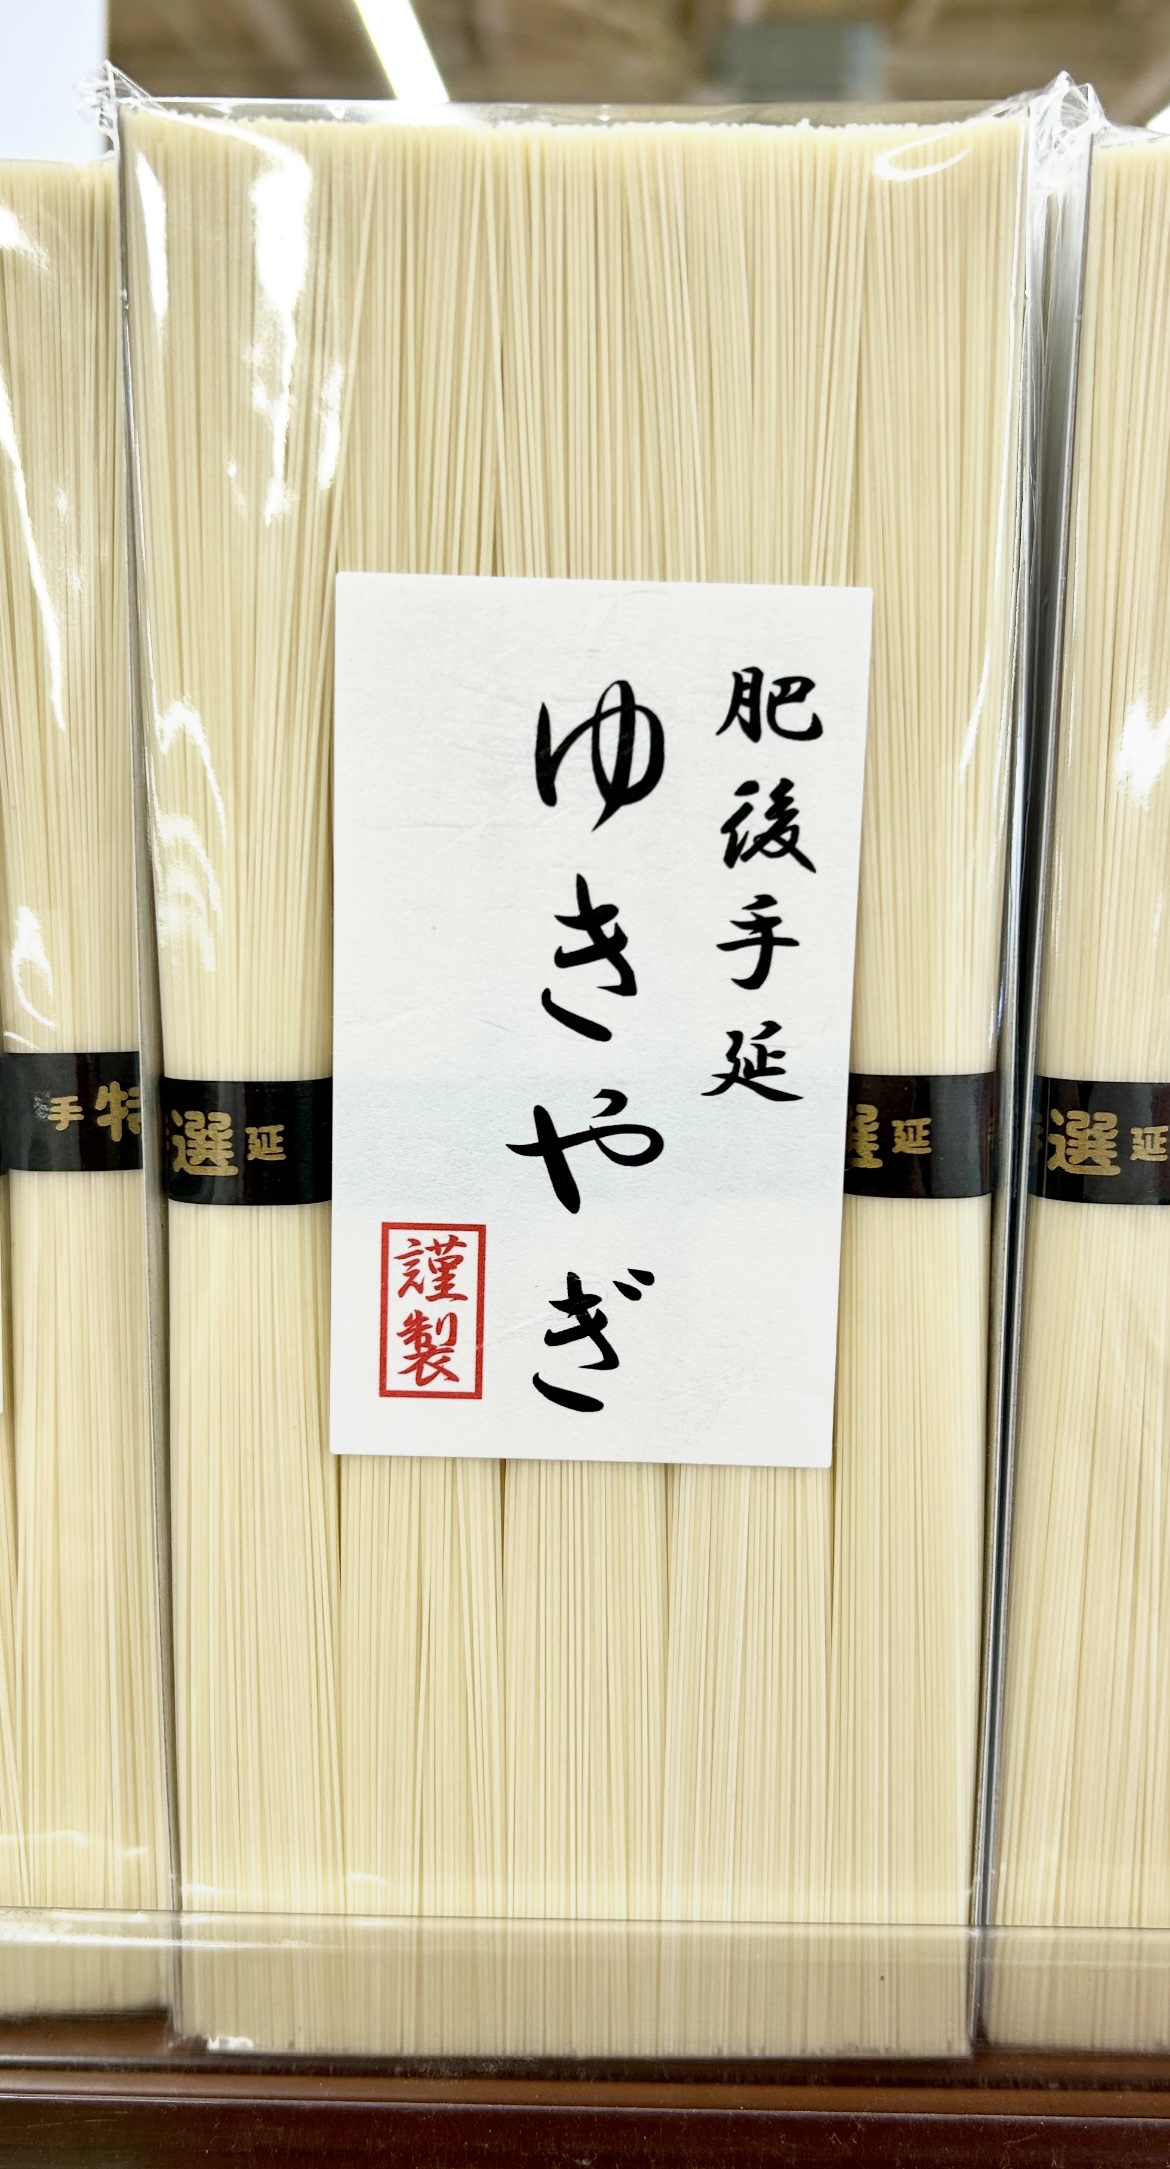 肥後手延
ゆきやぎ
謹製
手特
選延
選延
選延